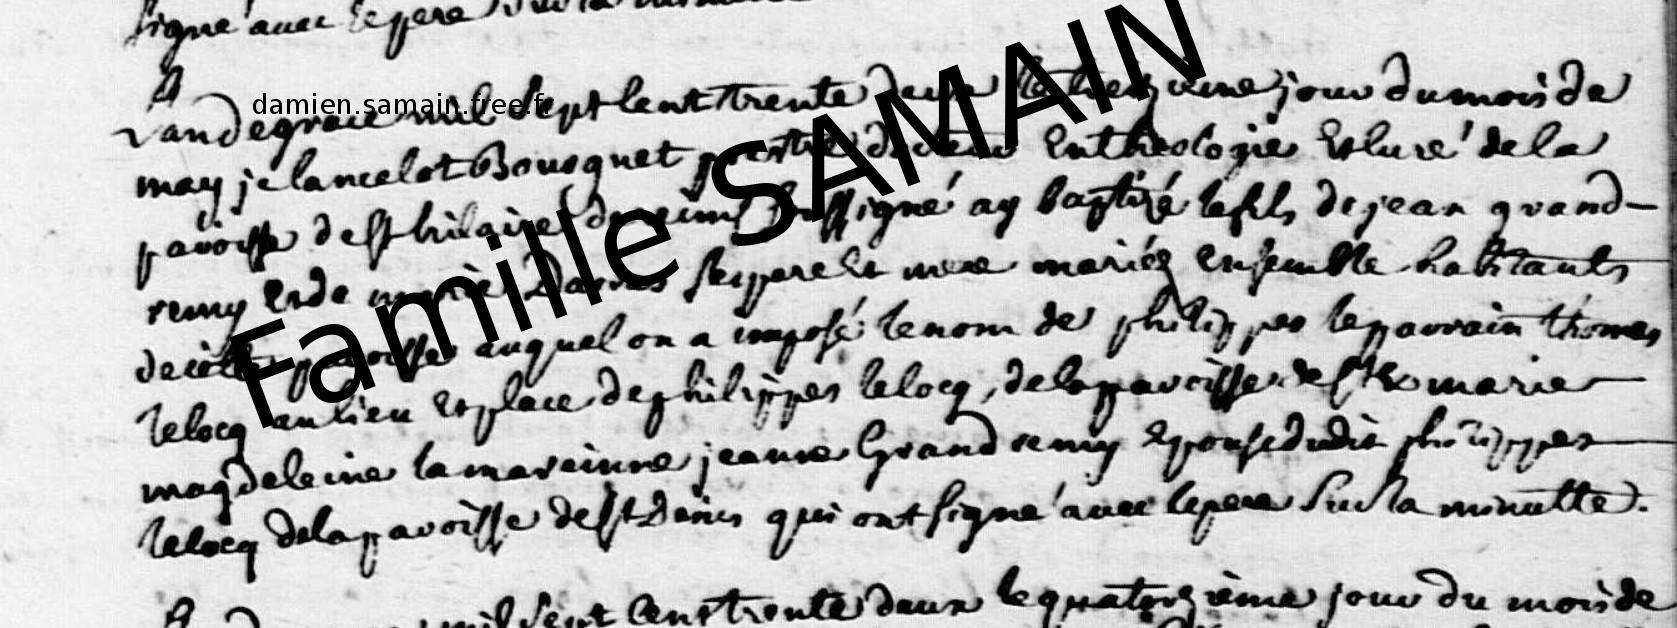 signé avec le pere Sur la minutte
L'an de grace mil Sept Cent trente deux le treizieme jour du mois de
damien.samain.free.fr
may je lancelot Bousquet prestre docteur En theologie Et Curé de la
paroisse de St hilaire de reims soussigné ay baptizé le fils de jean grand-
remy Et de marie Ses pere Et mere mariéz Ensemble habitants
de cette paroisse auquel on a imposé le nom de philippes le parrain thomas
lelocq au lieu Et place de philippes lelocq, de la paroisse de Ste marie
magdeleine la mareinne jeanne Grand remy Epouse dudit philippes
lelocq de la paroisse de St Denis qui ont signé avec le pere Sur la minutte.
mil Sept Cent trente deux le quatorzième jour du mois de
Famille SAMAIN